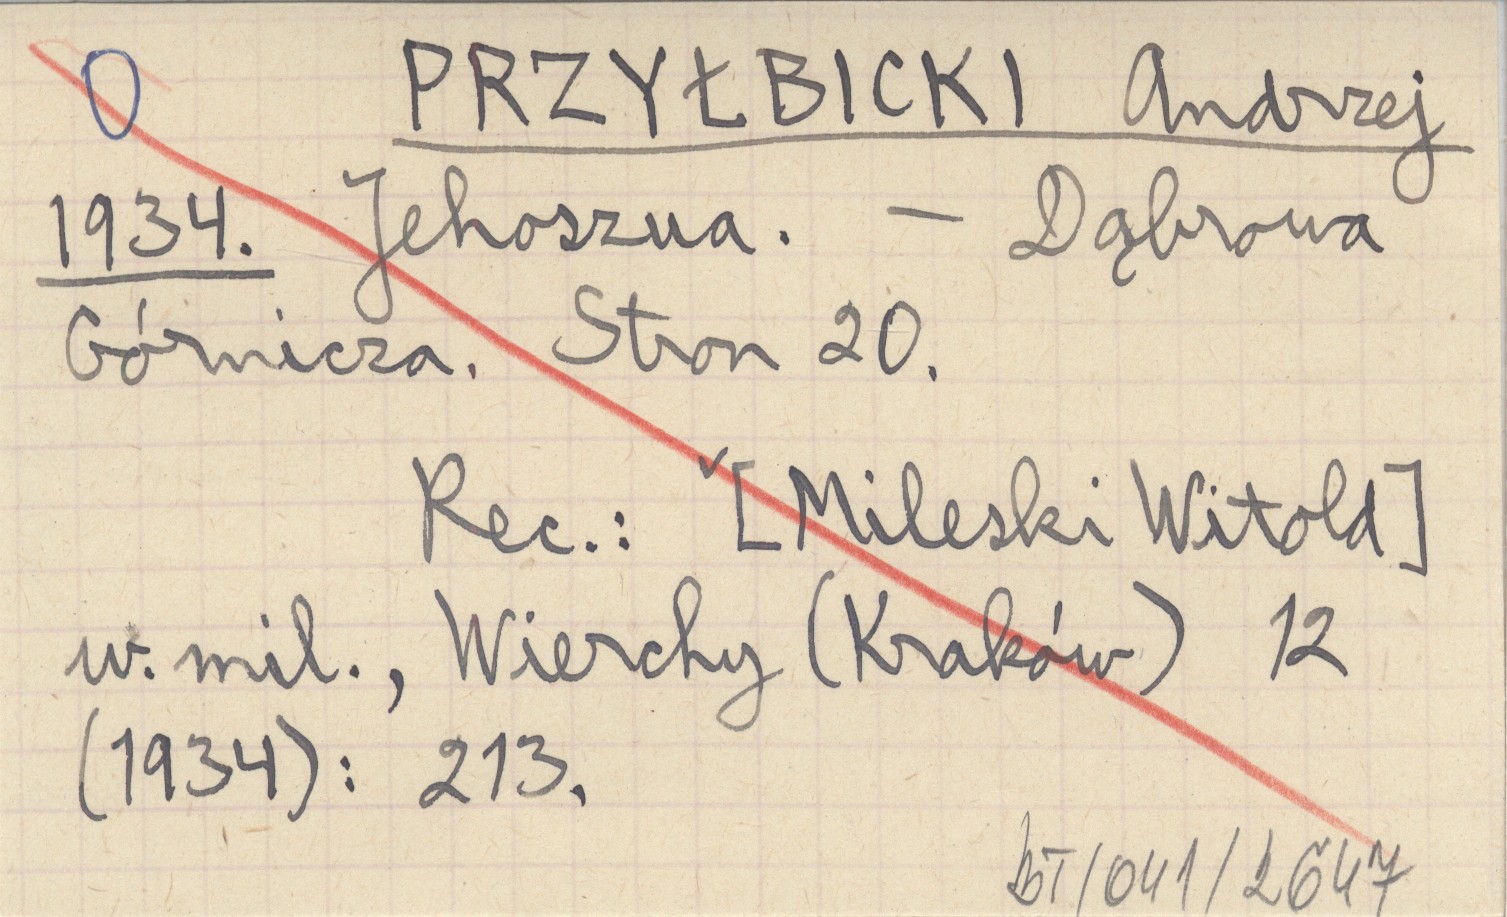 0 PRZYŁBICKI Andrzej
1934. Jehoszua. — Dąbrowa
Górnicza. Stron 20.
Rec.: [Mileski Witold]
w. mil., Wierchy (Kraków) 12
(1934): 213.
BT/041/2647